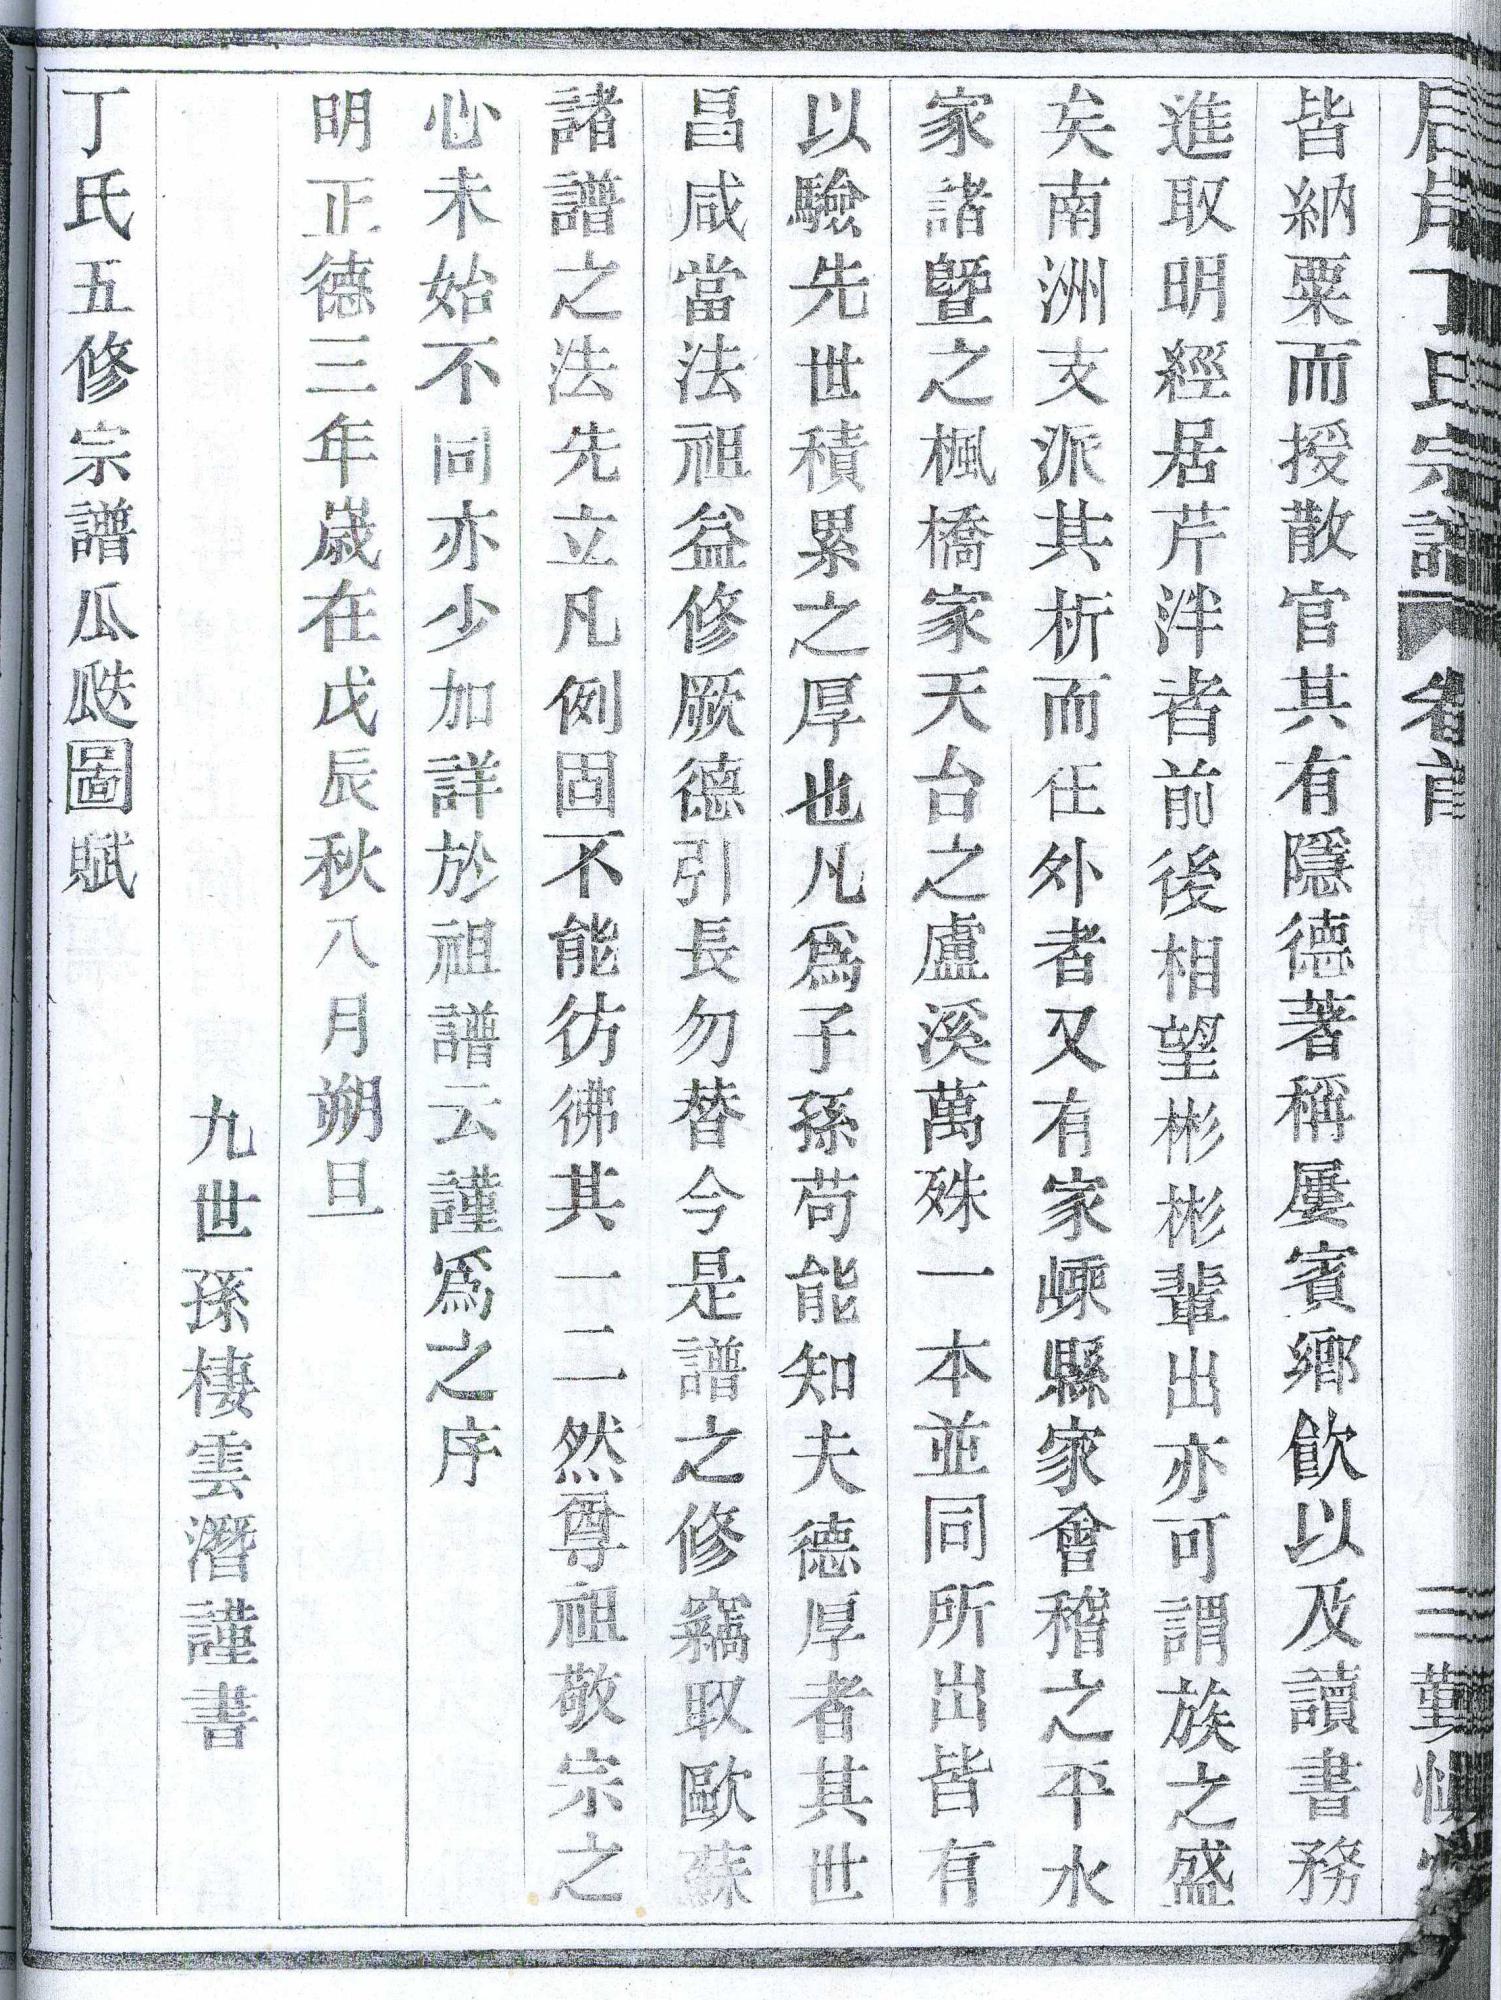 丁氏宗譜 卷首 三
皆納粟而授散官其有隱德著稱屢賓鄉飲以及讀書務
進取明經居芹泮者前後相望彬彬輩出亦可謂族之盛
矣南洲支派其析而在外者又有家嵊縣家會稽之平水
家諸曁之楓橋家天台之盧溪萬殊一本並同所出皆有
以驗先世積累之厚也凡爲子孫苟能知夫德厚者其世
昌咸當法祖益修厥德引長勿替今是譜之修竊取歐蘇
諸譜之法先立凡例固不能彷彿其一二然尊祖敬宗之
心未始不同亦少加詳於祖譜云謹爲之序
明正德三年歲在戊辰秋八月朔旦
九世孫棲雲潛謹書
丁氏五修宗譜瓜瓞圖賦